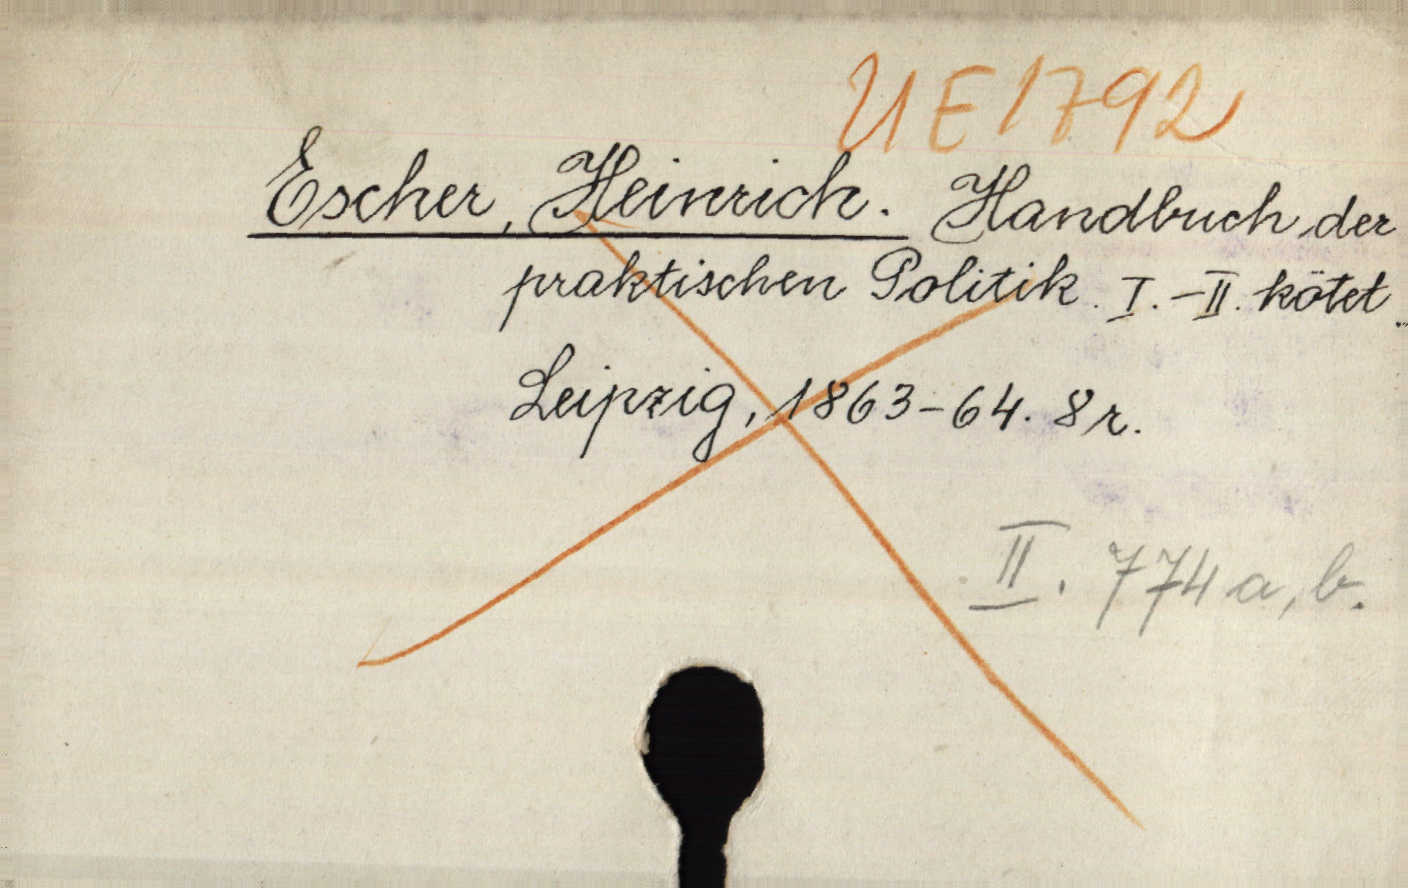 UE1792
Escher, Heinrich. Handbuch der
praktischen Politik. I.-II. kötet.
Leipzig, 1863-64. 8 r.
II. 774 a, b.